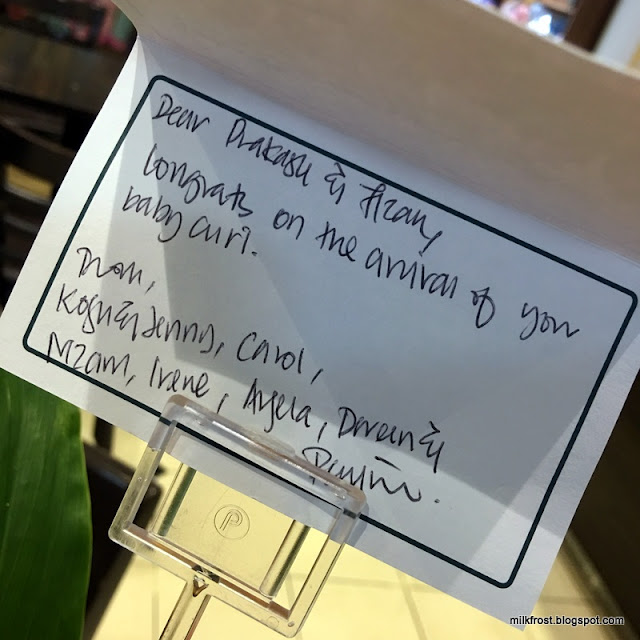 Dear Prakash & Azan,
Congrats on the arrival of you
baby Curl.
From,
Kogu & Jenny, Carol,
Nizam, Irene, Angela, Darren &
milkfrost.blogspot.com